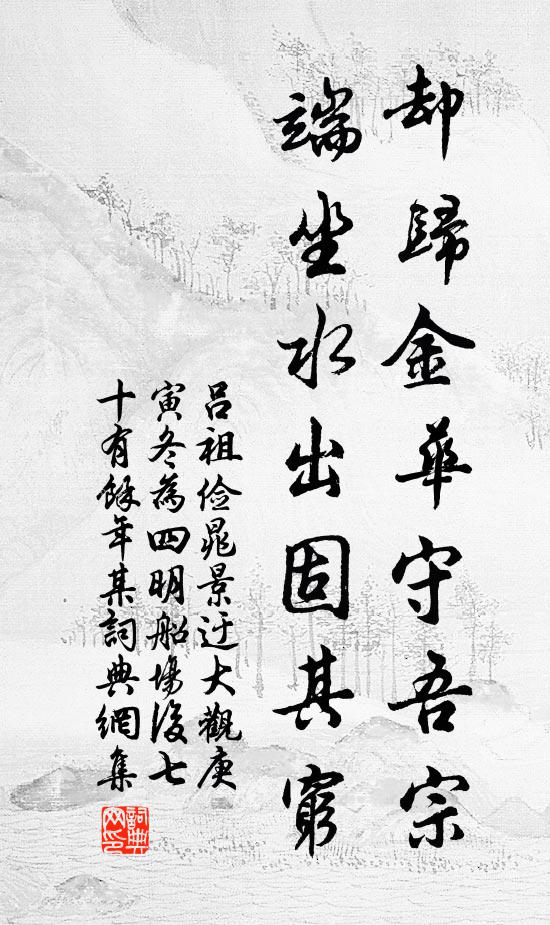 却歸金華守吾宗
端坐水出固其窮
呂祖儉晁景迂大觀庚
寅冬為四明船場後七
十有餘年某詞典網集
詞典
网印